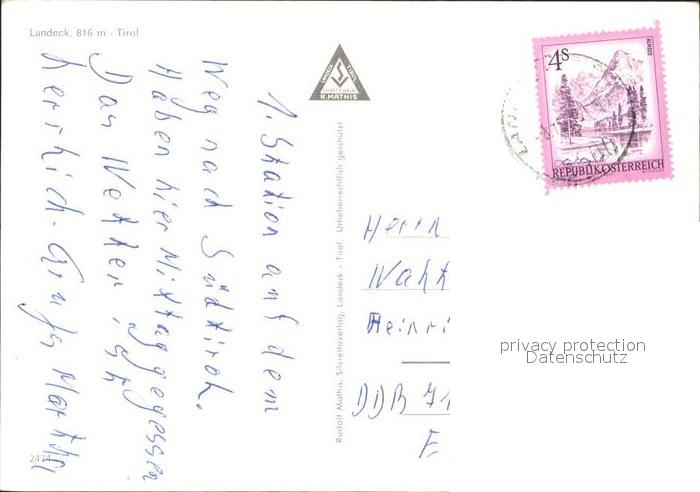 Landeck, 816 m - Tirol
1. Station auf dem
Weg nach Südtirol.
Haben hier Mittag gegessen
Das Wetter ist
herrlich. Gruß Martha
2474
LANDECK TIROL
R. MATHIS
Rudolf Mathis, Silvrettaverlag, Landeck - Tirol. Urheberrechtlich geschützt!
4S
ALMSEE
REPUBLIK ÖSTERREICH
Herrn
Heinri
DDR 71
privacy protection
Datenschutz